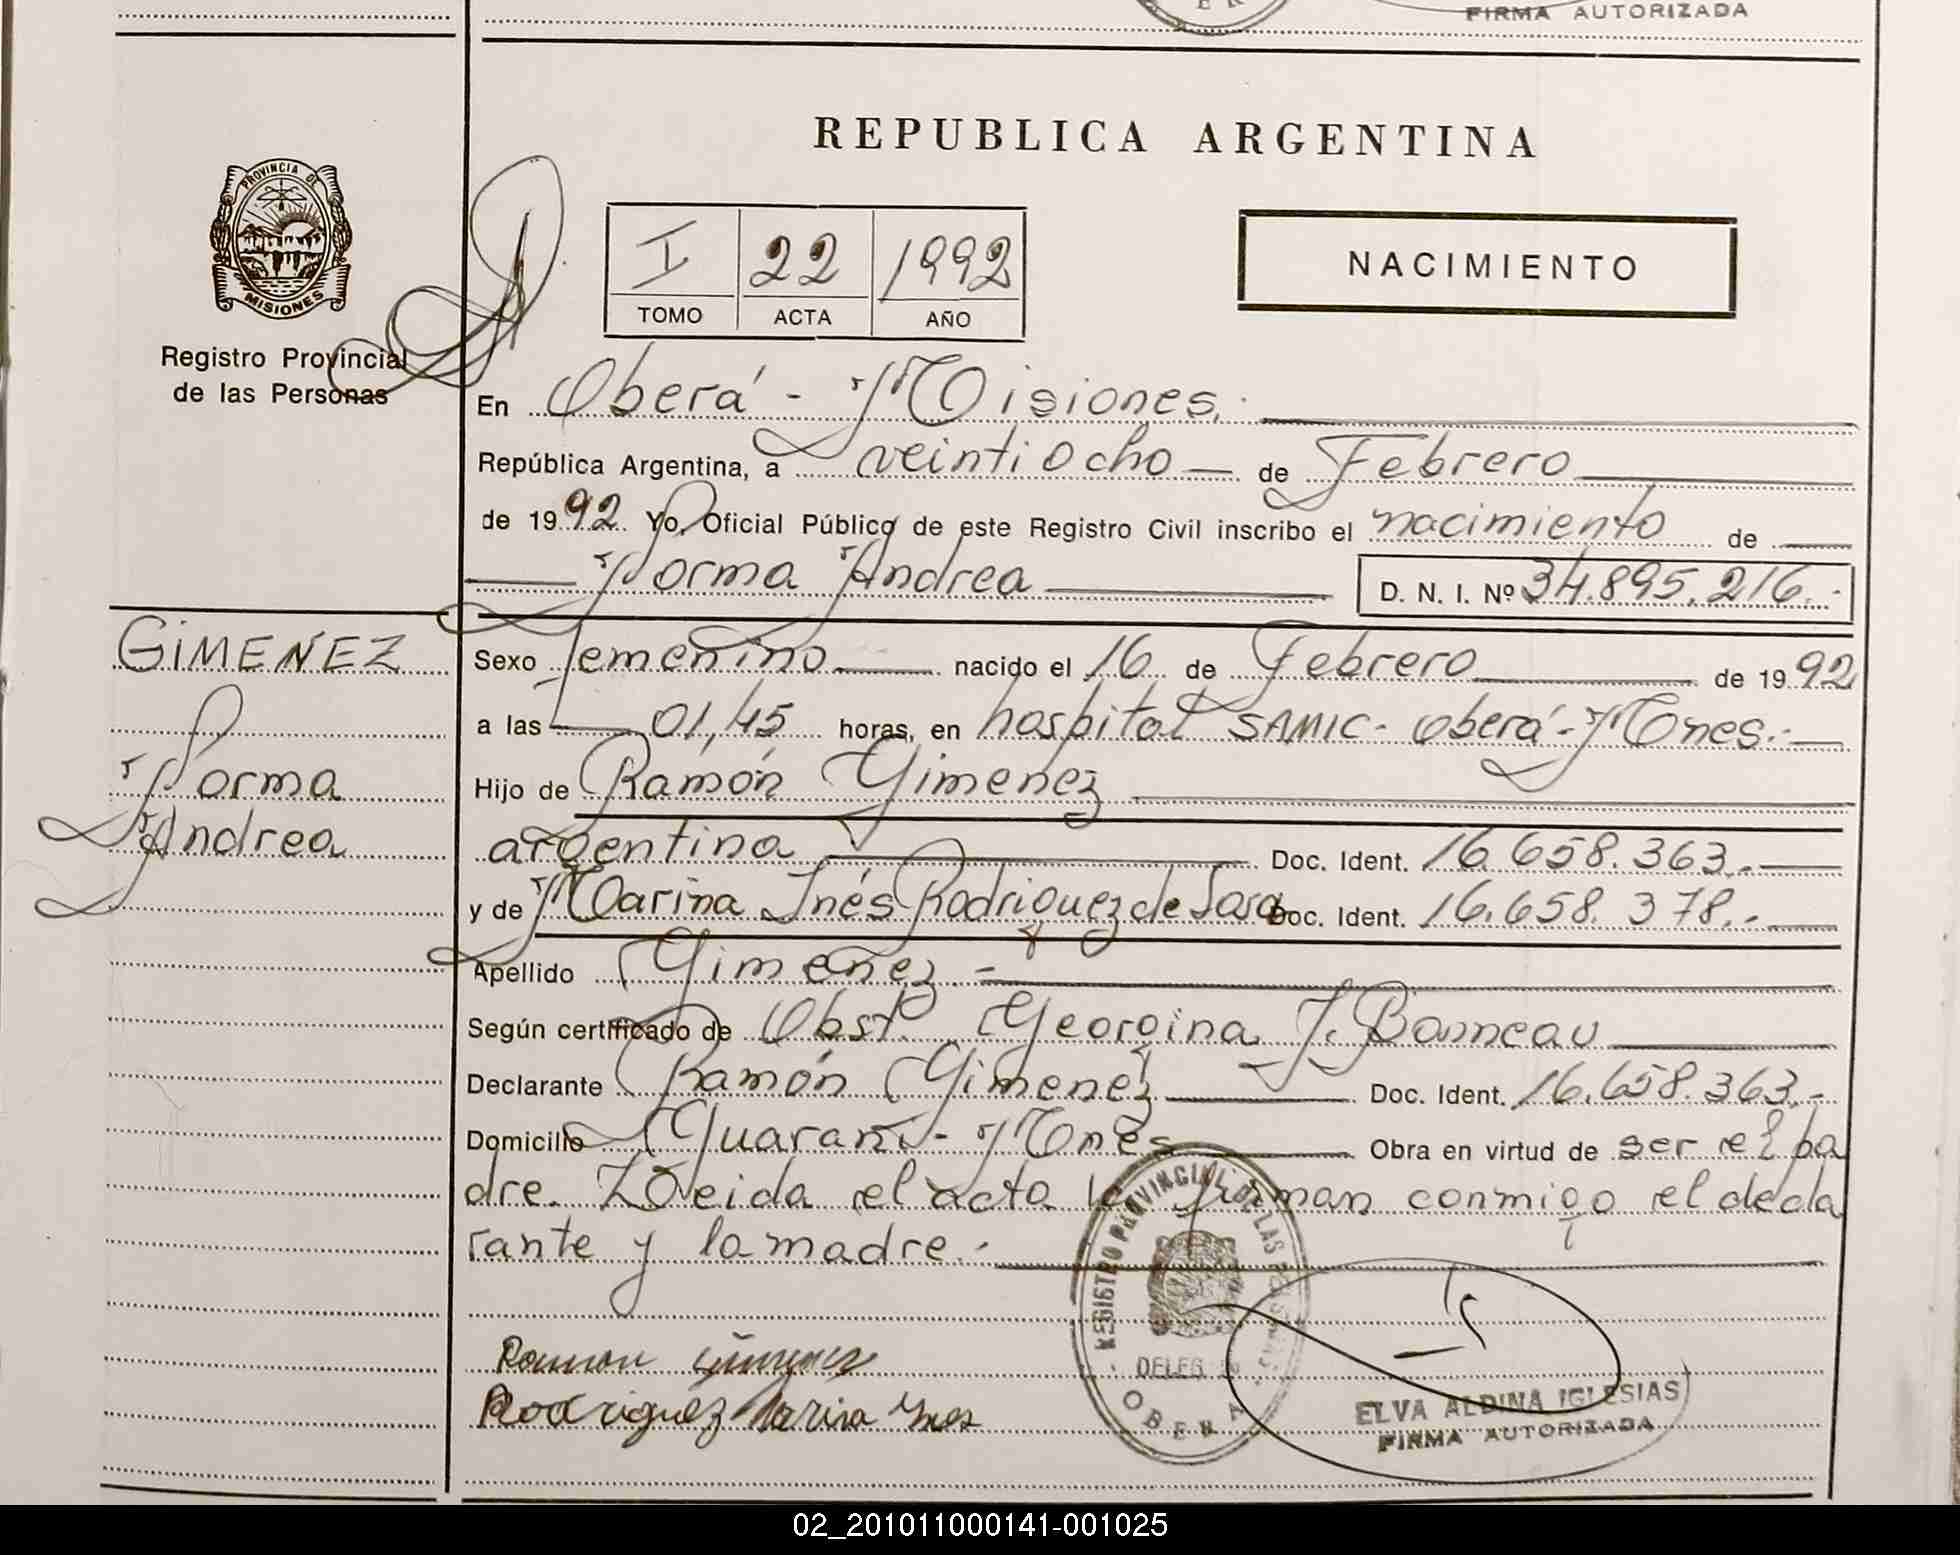 FIRMA AUTORIZADA
REPUBLICA ARGENTINA
PROVINCIA DE
MISIONES
Registro Provincial
de las Personas
I 22 1992
TOMO ACTA AÑO
NACIMIENTO
En Oberá - Misiones.
República Argentina, a veintiocho de Febrero
de 1992 Yo, Oficial Público de este Registro Civil inscribo el nacimiento de
Norma Andrea D. N. I. Nº 34.895.216.-
GIMENEZ
Norma
Andrea
Sexo femenino nacido el 16 de Febrero de 1992
a las 01,45 horas, en hospital SAMIC - Oberá - Mnes.-
Hijo de Ramón Gimenez
argentina Doc. Ident. 16.658.363.-
y de Marina Inés Rodriguez de Sosa Doc. Ident. 16.658.378.-
Apellido Gimenez.-
Según certificado de Obst. Georgina J.
Declarante Ramón Gimenez Doc. Ident. 16.658.363.-
Domicilio Guaraní - Mnes Obra en virtud de ser el pa
dre. Leida el acta la firman conmigo el decla
rante y la madre.-
Ramon Gimenez
Rodriguez Marina Ines
REGISTRO PROVINCIAL DE LAS PERSONAS
DELEG
OBERA
ELVA ALDINA IGLESIAS
FIRMA AUTORIZADA
02_201011000141-001025